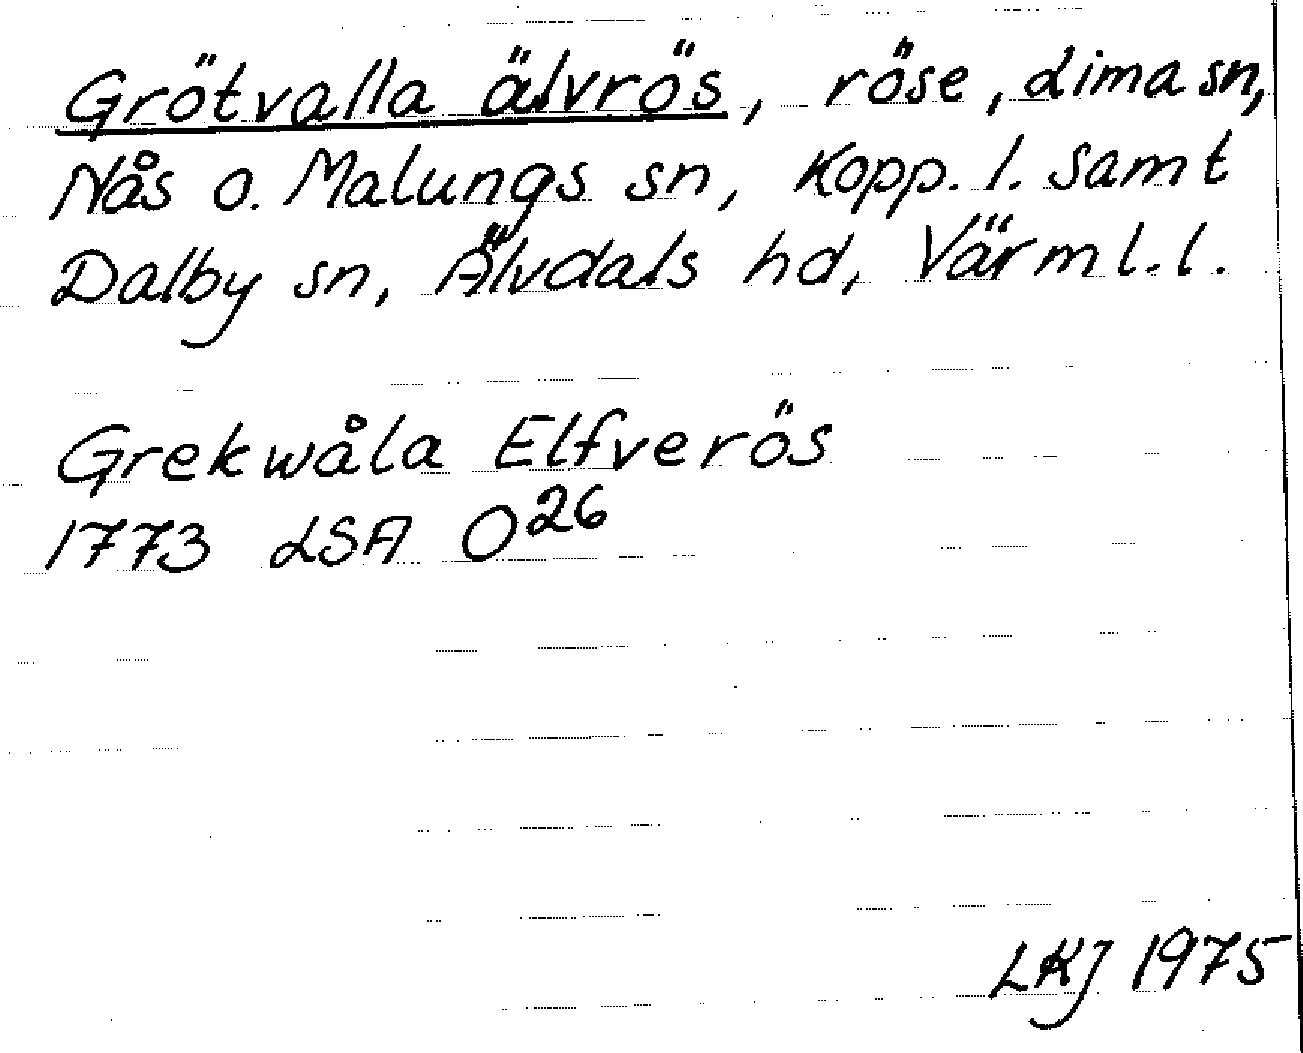 Grötvalla älvrös, röse, Lima sn,
Nås o. Malungs sn, Kopp. l. samt
Dalby sn, Älvdals hd, Värml. l.
Grekwåla Elfverös
1773 LSA O26
LKJ 1975